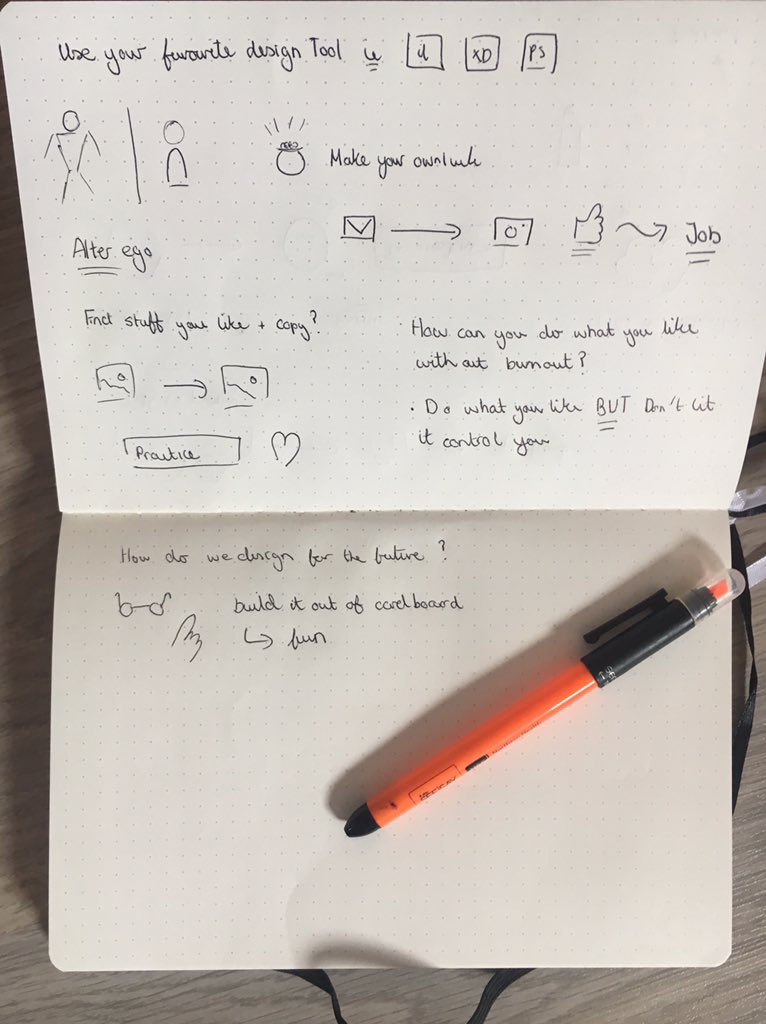 Use your favourite design Tool ie id XD PS
Make your own luck
Job
Alter ego
Find stuff you like + copy?
How can you do what you like
without burnout?
• Do what you like BUT Don't let
it control you
Practice
How do we design for the future?
build it out of cardboard
↳ fun